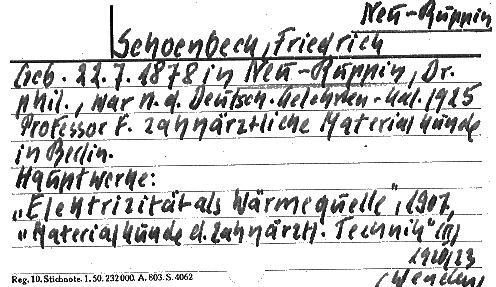 Neu-Ruppin
Schoenbeck, Friedrich
Geb. 22.7.1878 in Neu-Ruppin, Dr.
phil., war n. d. Deutsch. Gelehrten-Kal. 1925
Professor f. zahnärztliche Materialkunde
in Berlin.
Hauptwerke:
„Elektrizität als Wärmequelle", 1907,
„Materialkunde d. zahnärztl. Technik"
1920/23
Reg. 10. Stichnote. 1. 50. 232000. A. 803. S. 4062
(Wenden)